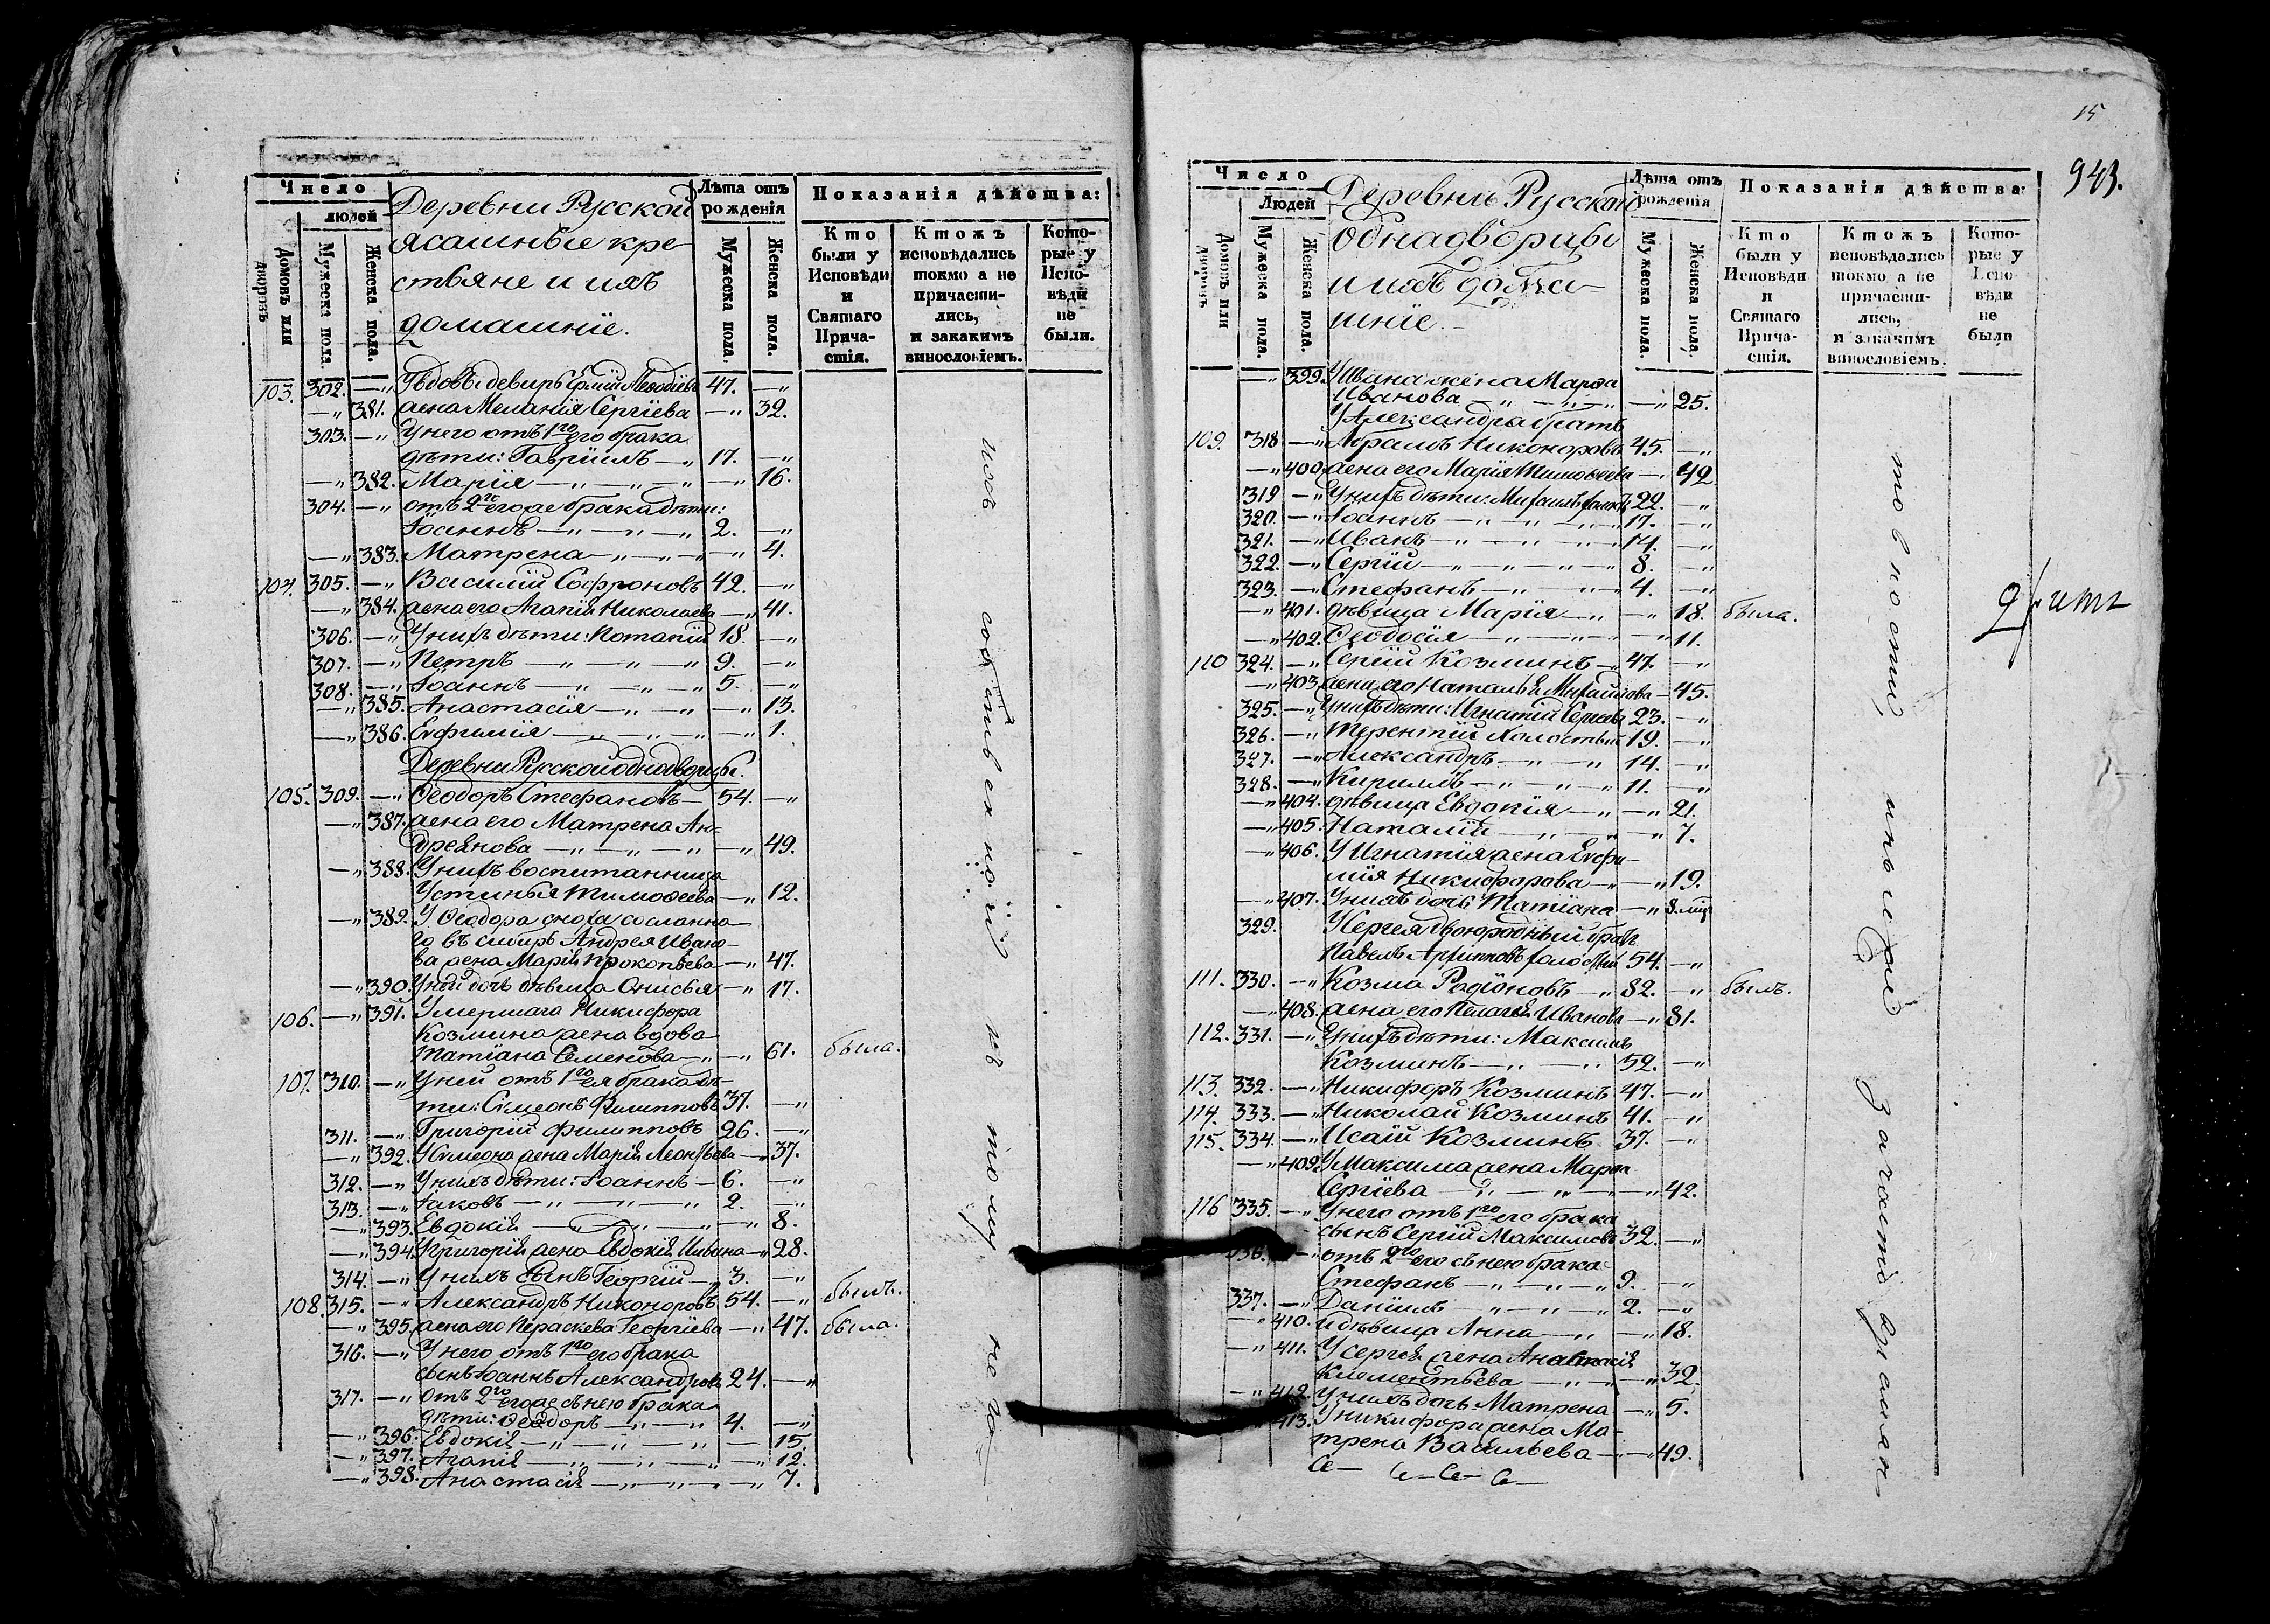 Число
людей
Домовъ или дворовъ
Мужеска пола.
Женска пола.
Деревни Русской
ясашные кре-
стьяне и ихъ
домашніе.
Лѣта отъ рожденія
Мужеска пола.
Женска пола.
Показанія дѣйства:
Кто были у Исповѣди и Святаго Причастія.
Ктожъ исповѣдались токмо а не причастились, и закакимъ винословіемъ.
Которые у Исповѣди не были.
103. 302. —„ Уздовы деверь Мефодіевъ 47. —„
—„ 381. жена Меланія Сергіева —„ 32.
303. —„ У него отъ 1го его брака
дѣти: Гавріилъ —„ 17. —„
—„ 382. Марія —„ —„ —„ —„ 16.
304. —„ отъ 2го его же брака дѣти:
Іоаннъ —„ —„ —„ 2. —„
—„ 383. Матрена —„ —„ —„ 4.
104. 305. —„ Василій Софроновъ 42. —„
—„ 384. жена его Агапія Николаева —„ 41.
306. —„ У нихъ дѣти: Потапій 18. —„
307. —„ Петръ —„ —„ —„ 9. —„
308. —„ Іоаннъ —„ —„ —„ 5. —„
—„ 385. Анастасія —„ —„ —„ 13.
—„ 386. Евфимія —„ —„ —„ 1.
Деревни Русской однодворцы.
105. 309. —„ Ѳеодоръ Стефановъ — 54. —„
—„ 387. жена его Матрена Ан-
дреянова —„ —„ —„ —„ 49.
—„ 388. У нихъ воспитанница
Устинья Тимоѳеева —„ 12.
—„ 389. У Ѳеодора сноха сосланна-
го въ сибирь Андрея Ивано-
ва жена Марія Прокопьева —„ 47.
—„ 390. У ней дочь дѣвица Онисья —„ 17.
106. —„ 391. Умершаго Никифора
Козмина жена вдова
Татіана Семенова —„ —„ 61. была.
107. 310. —„ У ней отъ 1го ея брака дѣ-
ти: Сѵмеонъ Филипповъ 37. —„
311. —„ Григорій Филипповъ 26. —„
—„ 392. У Сѵмеона жена Марія Леонтьева —„ 37.
312. —„ У нихъ дѣти: Іоаннъ — 6. —„
313. —„ Іаковъ —„ —„ —„ 2. —„
—„ 393. Евдокія —„ —„ —„ 8.
—„ 394. У григорія жена Евдокія —„ 28.
314. —„ У нихъ сынъ Георгій —„ 3. —„
108. 315. —„ Александръ Никоноровъ 54. —„ былъ.
—„ 395. жена его Пераскева Георгіева —„ 47. была.
316. —„ У него отъ 1го его брака
сынъ Іоаннъ Александровъ 24. —„
317. —„ Отъ 2го его же съ нею брака
дѣти: Ѳеодоръ —„ —„ 4. —„
—„ 396. Евдокія —„ —„ —„ — 15.
—„ 397. Агапія —„ —„ —„ —„ 12.
—„ 398. Анастасія —„ —„ —„ 7.
собственной
къ
тому
15
943.
Число
Людей
Домовъ или дворовъ
Мужеска пола.
Женска пола.
Деревнѣ Русской
Однадворцы
и ихъ дома-
шніе.
Лѣта отъ рожденія
Мужеска пола.
Женска пола.
Показанія дѣйства:
Кто были у Исповѣди и Святаго Причастія.
Ктожъ исповѣдались токмо а не причастились, и закакимъ винословіемъ.
Которые у Исповѣди не были
—„ 399. У Ивана жена Марѳа
Иванова —„ —„ —„ —„ 25.
У Александра братъ
109. 318 —„ Абрамъ Никоноровъ 45. —„
—„ 400. жена его Марія Тимоѳеева —„ 42
319 —„ У нихъ дѣти: Михаилъ 22. —„
320. —„ Іоаннъ —„ —„ —„ 17. —„
321. —„ Иванъ —„ —„ —„ 14. —„
322. —„ Сергій —„ —„ —„ 8. —„
323. —„ Стефанъ —„ —„ —„ 4. —„
—„ 401. дѣвица Марія —„ —„ 18. была.
—„ 402. Ѳеодосія —„ —„ —„ 11.
110 324. —„ Сергій Козминъ —„ 47. —„
—„ 403. жена его Наталья Михайлова — 45.
325. —„ У нихъ дѣти: Игнатій Сергіевъ 23. —„
326. —„ Терентій Холостый 19. —„
327. —„ Александръ —„ —„ 14. —„
328. —„ Кириллъ —„ —„ —„ 11. —„
—„ 404. дѣвица Евдокія —„ —„ 21.
—„ 405. Наталія —„ —„ —„ 7.
—„ 406. У Игнатія жена Евфи-
мія Никифорова —„ —„ 19.
—„ 407. У нихъ дочь Татіана —„ 8. мцъ
329. У Сергея двоюродный братъ
Павелъ Архиповъ холостый 54. —„
111. 330. —„ Козма Родіоновъ —„ 82. —„ былъ.
—„ 408. жена его Пелагея Иванова —„ 81.
112. 331. —„ У нихъ дѣти: Максимъ
Козминъ —„ —„ 52. —„
113. 332. —„ Никифоръ Козминъ 47. —„
114. 333. —„ Николай Козминъ 41. —„
115. 334. —„ Исаій Козминъ 37. —„
—„ 409. У Максима жена Марѳа
Сергіева —„ —„ —„ —„ 42.
116 335. —„ У него отъ 1го его брака
сынъ Сергій Максимовъ 32. —„
336. —„ отъ 2го его съ нею брака
Стефанъ —„ —„ —„ 9. —„
337. —„ Даніилъ —„ —„ —„ 2. —„
—„ 410. и дѣвица Анна —„ —„ 18.
—„ 411. У сергея жена Анастасія
Климентьева —„ —„ —„ 32.
—„ 412. У нихъ дочь Матрена —„ 5.
413. У никифора жена Ма-
трена Васильева —„ —„ 49.